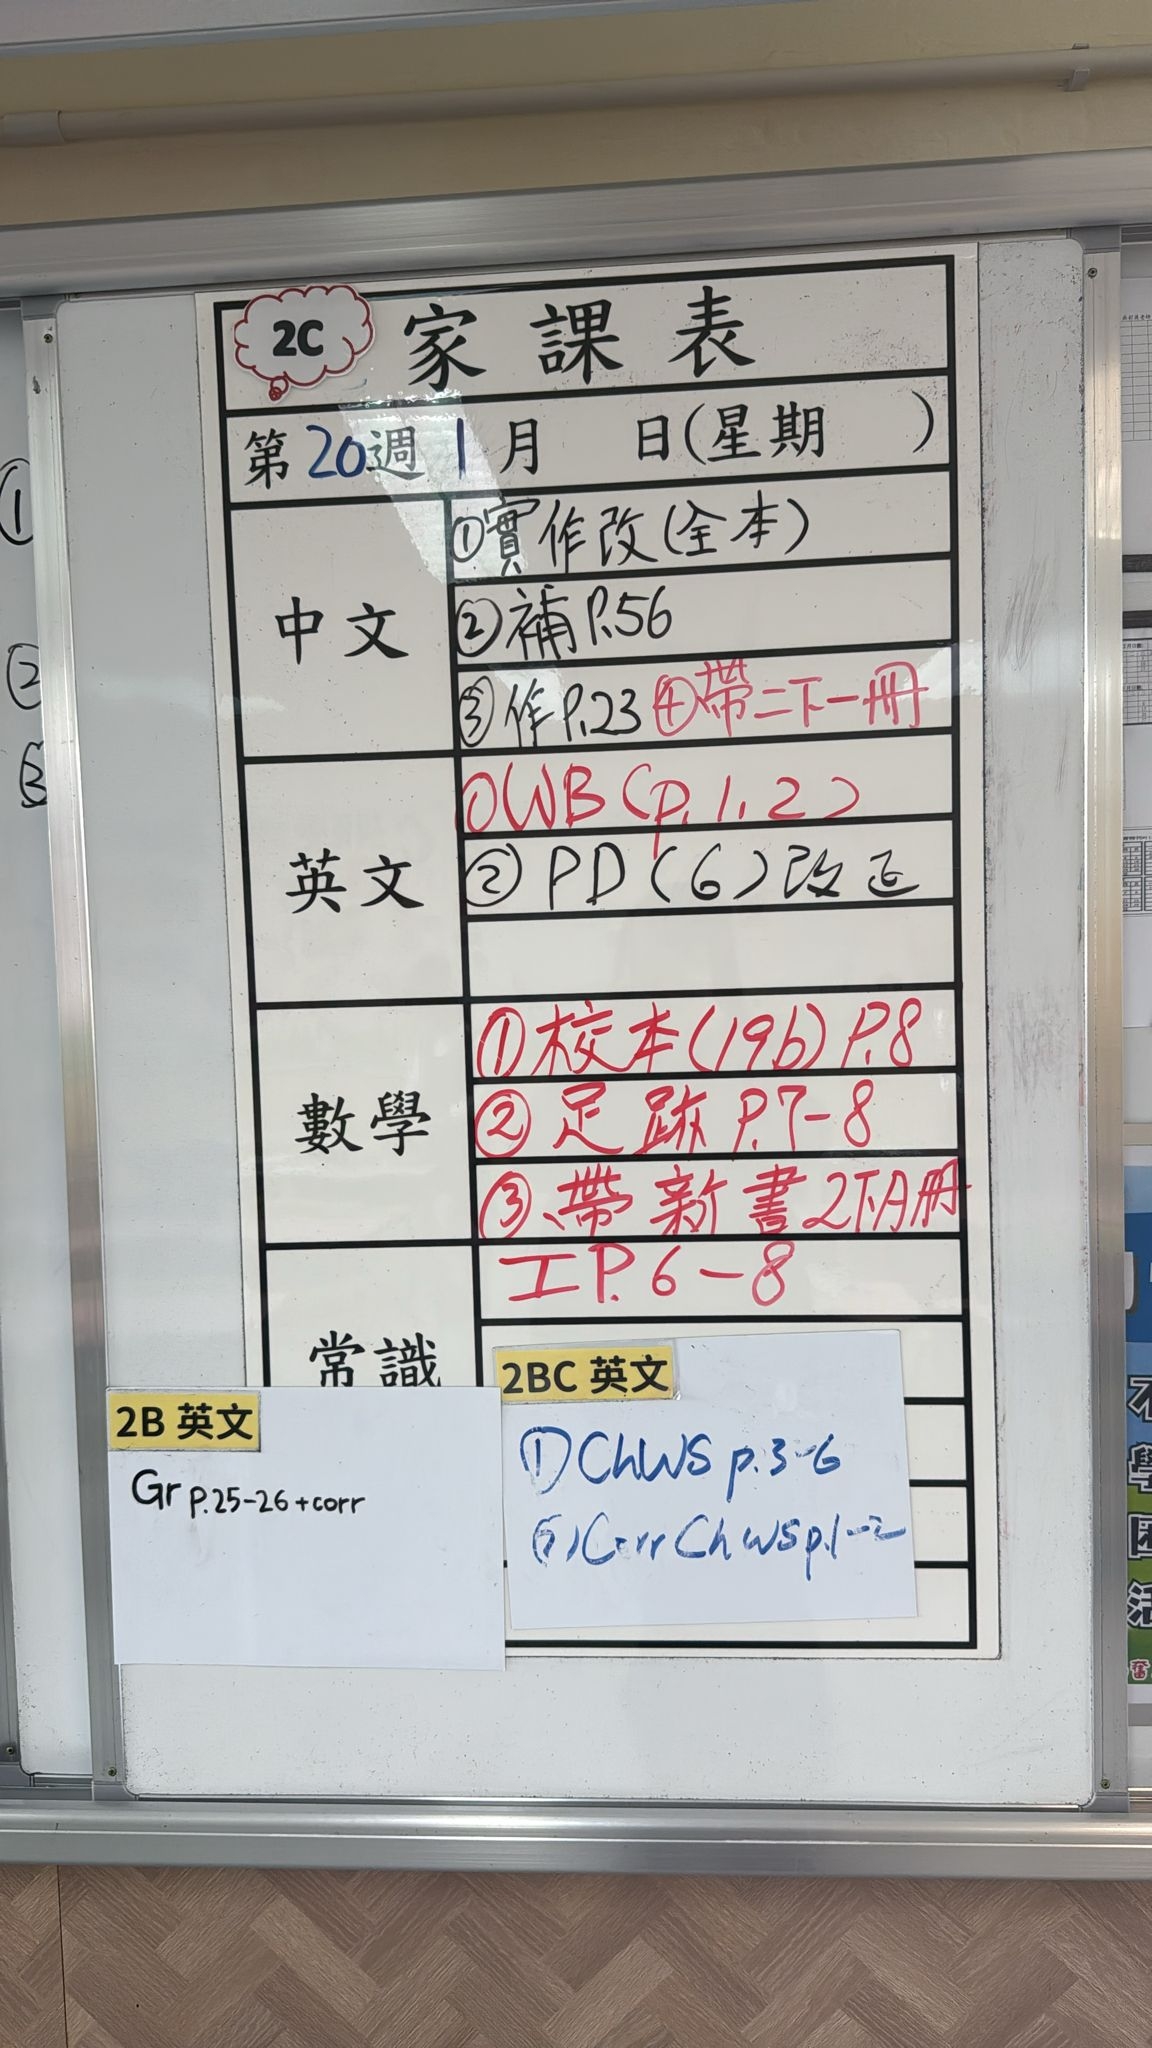 2C 家課表
第20週 1月 日(星期 )
中文
①實作改(全本)
②補P.56
③作P.23 ④帶二下一冊
英文
①WB(p.1,2)
②PD(6)改正
數學
①校本(19b) P.8
②足跡 P.7-8
③帶新書2下A冊
常識
工P.6-8
2B 英文
Gr p.25-26+corr
2BC 英文
①ChWS p.3-6
Corr ChWS p.1-2
①
②
③